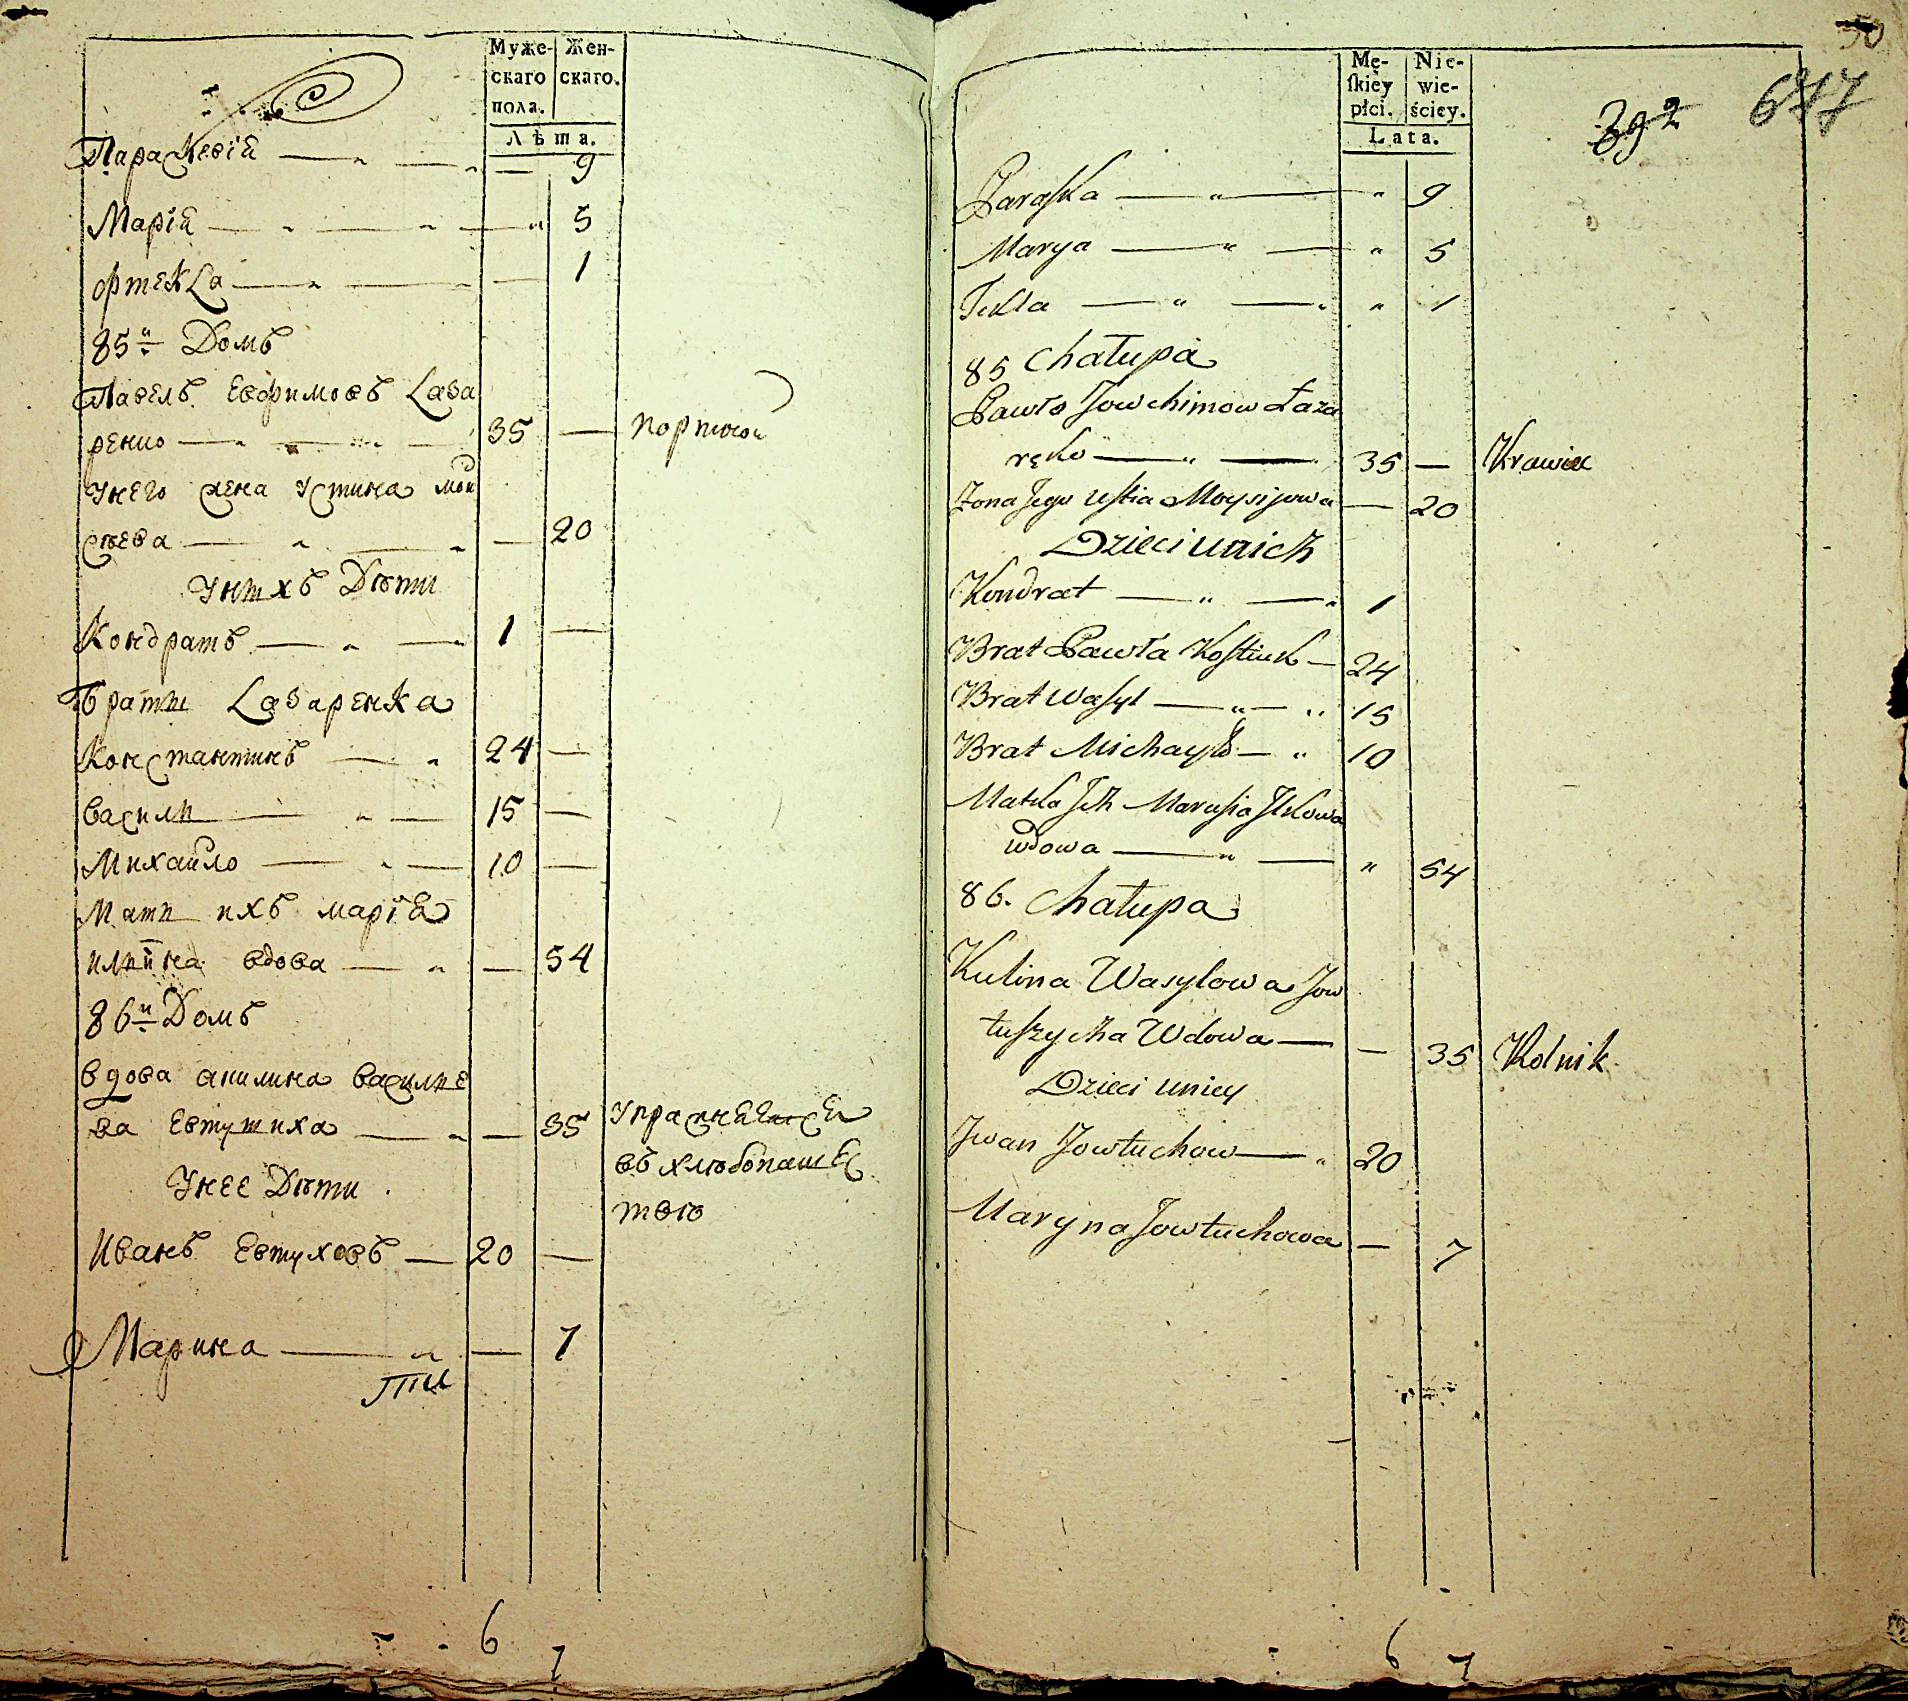 Муже-
скаго
пола.
Жен-
скаго.
Лѣта.
Параскевіа 9
Маріа 5
Фтекла 1
85й Домъ
Павелъ Евфимовъ Лаза
ренко 35 портной
Унего жена Устина мои
сѣева 20
Унихъ Дѣти
Кондратъ 1
Братіи Лазаренка
Константинъ 24
Васили 15
Михайло 10
Мати ихъ маріа
илїина вдова 54
86й Домъ
вдова акилина василие
ва Евтушиха 35 упражняется
въ хлѣбопашес
твѣ
Унее Дѣти
Иванъ Евтуховъ 20
Марина 7
6 7
50
392
677
Mę-
skiey
płci.
Nie-
wie-
ściey.
Lata.
Paraska 9
Marya 5
Tekla 1
85 Chałupa
Pawło Jowchimow Łaza
ręko 35 Krawiec
Żona Jego Ustia Moysijowa 20
Dzieci unich
Kondrat 1
Brat Pawła Kostiuk 24
Brat Wasyl 15
Brat Michayło 10
Matka Ich Marusia Ilkowa
wdowa 54
86. Chałupa
Kulina Wasylowa Jow
tuszycha Wdowa 35 Rolnik
Dzieci uniey
Jwan Jowtuchow 20
Maryna Jowtuchowa 7
6 7